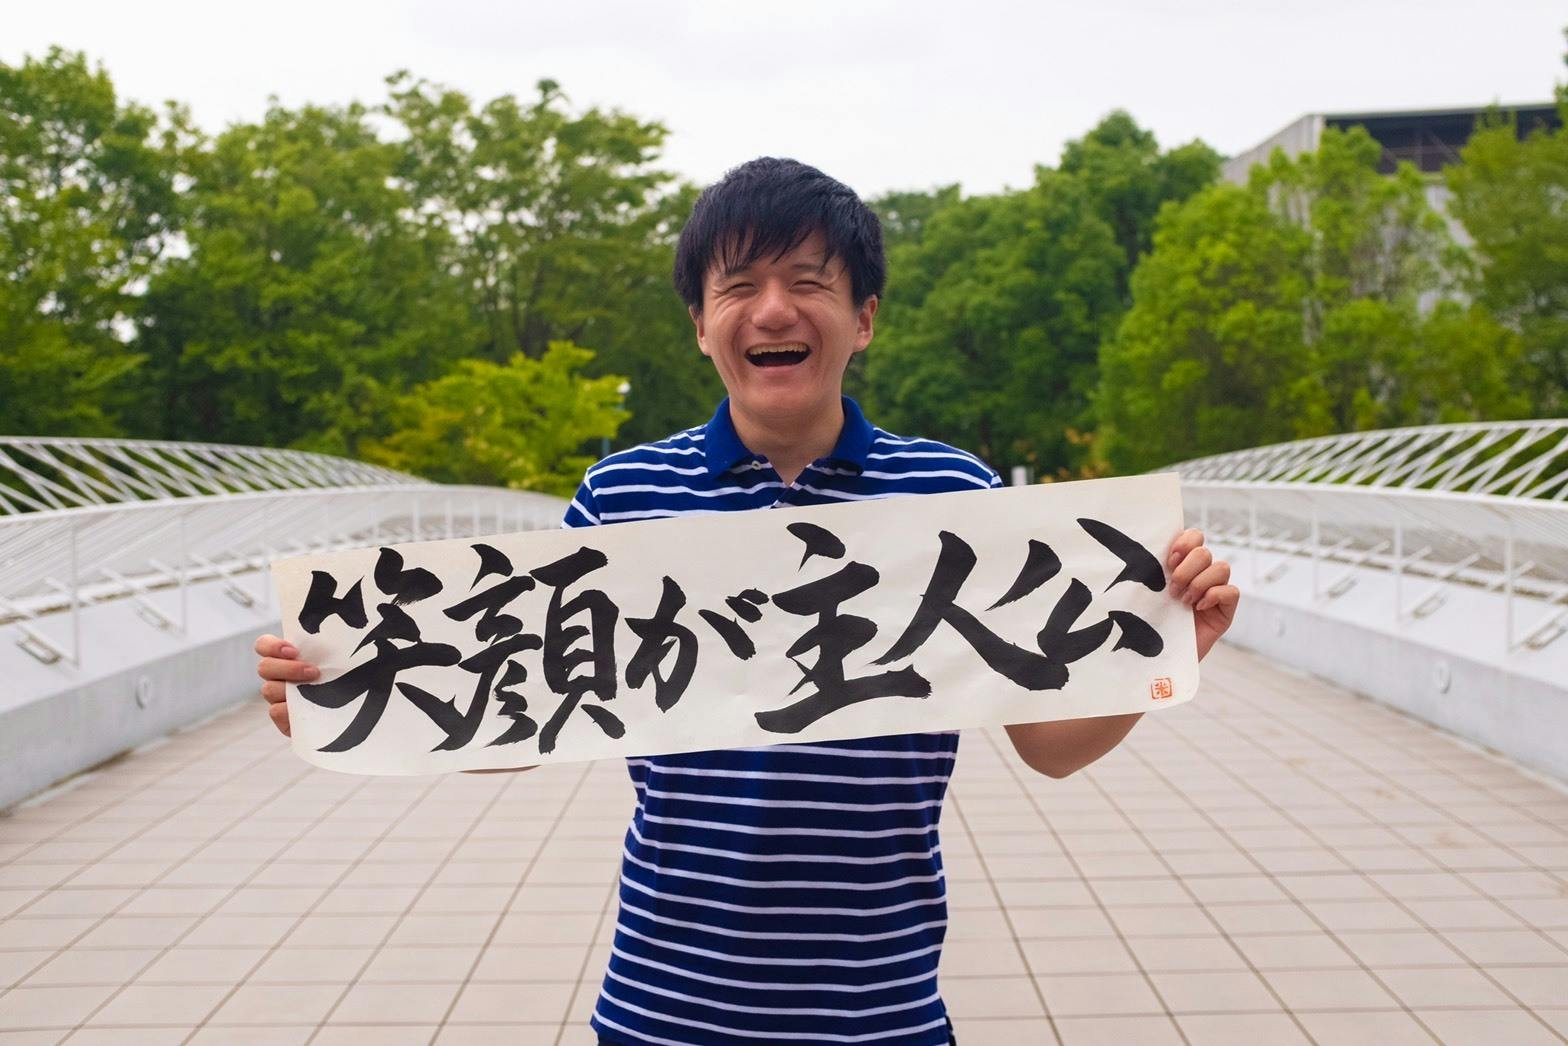 笑顔が主人公